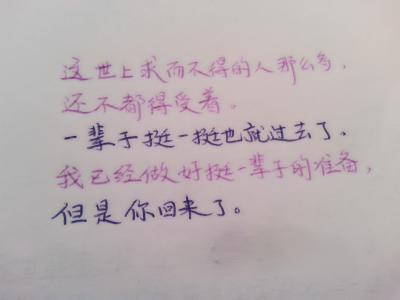 这世上求而不得的人那么多，
还不都得受着。
一辈子挺一挺也就过去了。
我已经做好挺一辈子的准备，
但是你回来了。